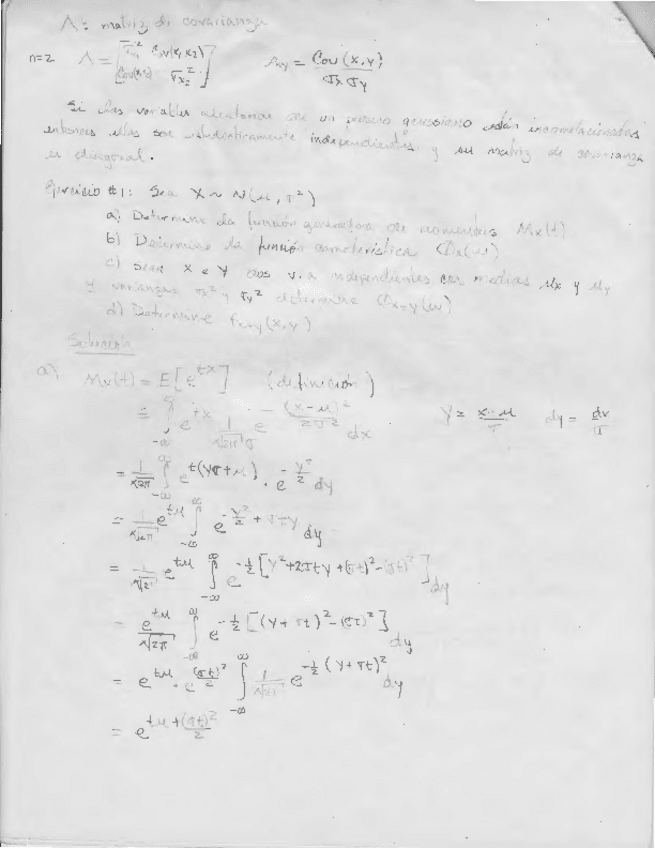 Λ: matriz de covarianza
n=2 Λ = [σx₁² Cov(x₁,x₂) ρxy = Cov(x,y)/σxσy
Cov(x₁,x₂) σx₂²]
Si las variables aleatorias de un proceso gaussiano están incorrelacionadas
entonces ellas son estadísticamente independientes y su matriz de covarianza
es diagonal.
Ejercicio #1: Sea X ~ N(μ, σ²)
a) Determine la función generadora de momentos Mx(t)
b) Determine la función característica Φx(ω)
c) sean X e Y dos v.a independientes con medias μx y μy
y varianzas σx² y σy² determine Φx+y(ω)
d) Determine fx+y(x,y)
Solución
a) Mx(t) = E[e^tx] (definición)
= ∫_-∞^∞ e^tx 1/√2π σ e^-(x-μ)²/2σ² dx Y = x-μ/σ dy = dx/σ
= 1/√2π ∫_-∞^∞ e^t(yσ+μ) · e^-y²/2 dy
= 1/√2π e^tμ ∫_-∞^∞ e^-y²/2 + σty dy
= 1/√2π e^tμ ∫_-∞^∞ e^-½[y²+2σty+(σt)²-(σt)²] dy
= e^tμ/√2π ∫_-∞^∞ e^-½[(y+σt)²-(σt)²] dy
= e^tμ · e^(σt)²/2 ∫_-∞^∞ 1/√2π e^-½(y+σt)² dy
= e^tμ+(σt)²/2